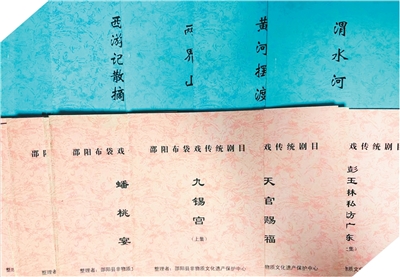 西游记散摘
两界山
黄河摆渡
渭水河
邵阳
整理
邵阳布袋戏
蟠桃宴
整理者：邵阳县非物质
邵阳布袋戏传统剧目
九锡宫
（上集）
整理者：邵阳县非物质文化遗产保护中心
戏传统剧目
天官赐福
物质文化遗产保护中心
戏传统剧目
彭玉林私访广东
（上集）
物质文化遗产保护中心